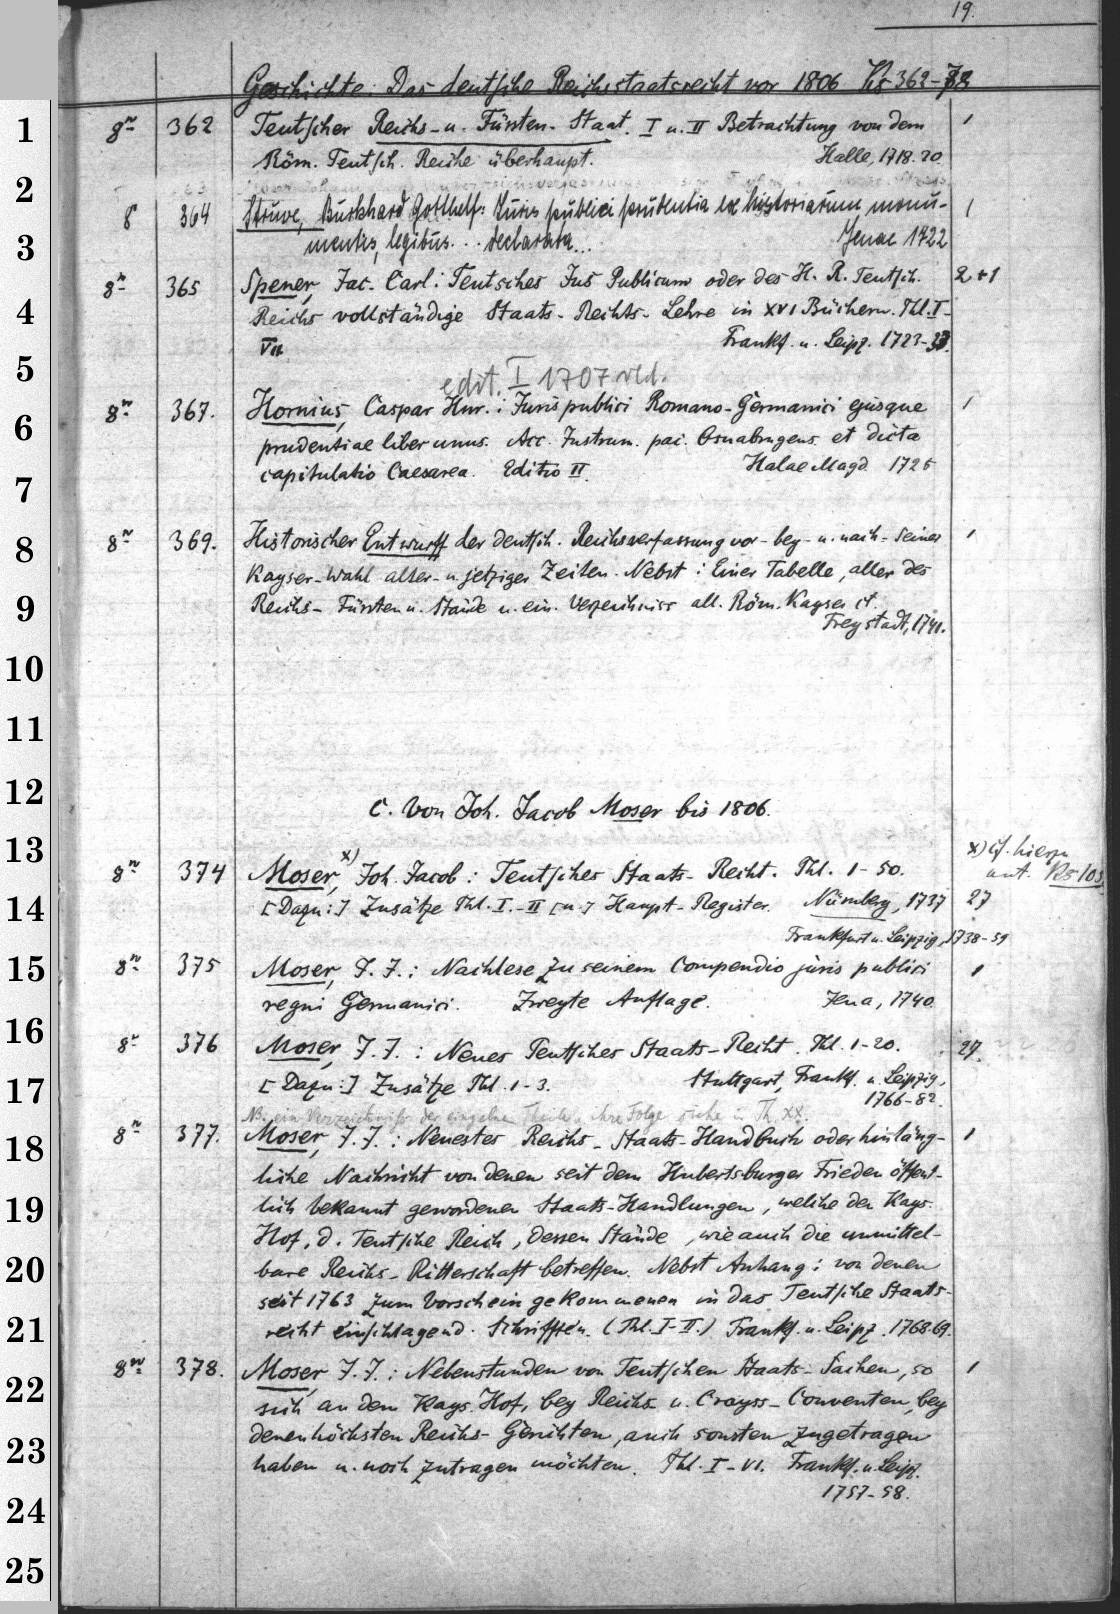 19.
Geschichte: Das deutsche Reichsstaatsrecht vor 1806 Rs 362-78
1
8º 362 Teutscher Reichs- u. Fürsten-Staat. I u. II Betrachtung von dem 1
Röm. Teutsch. Reiche überhaupt. Halle, 1718.20.
2
8 364 Struve, Burkhard Gotthelf: Juris publici prudentia ex historiarum monu- 1
3
mentis, legibus... declarata... Jenae 1722
8º 365 Spener, Jac. Carl: Teutsches Jus Publicum oder des H. R. Teutsch. 2+1
4
Reichs vollständige Staats-Rechts-Lehre in XVI Büchern. Thl. I-
VII Frankf. u. Leipz. 1723-33.
5
edit. I 1707
8º 367. Hornius, Caspar Hnr.: Juris publici Romano-Germanici ejusque 1
6
prudentiae liber unus. Acc. Instrum. pac. Osnabrugens. et dicta
capitulatio Caesarea. Editio II. Halae Magd. 1725
7
8
8º 369. Historischer Entwurff der deutsch. Reichsverfassung vor- bey- u. nach- seines 1
Kayser-Wahl alter- u. jetziger Zeiten. Nebst: Einer Tabelle, aller des
9
Reichs-Fürsten u. Stände u. ein. Verzeichniss all. Röm. Kayser ct.
Freystadt, 1741.
10
11
12
C. Von Joh. Jacob Moser bis 1806.
13
x) cf. hierzu
ant. Rs 103
8º 374 Moser, x) Joh. Jacob: Teutsches Staats-Recht. Thl. 1-50.
14
[Dazu:] Zusätze Thl. I.-II [u.] Haupt-Register. Nürnberg, 1737 27
Frankfurt u. Leipzig, 1738-54
15
8º 375 Moser, J. J.: Nachlese zu seinem Compendio juris publici 1
regni Germanici. Zweyte Auflage. Jena, 1740.
16
8º 376 Moser, J. J.: Neues Teutsches Staats-Recht. Thl. 1-20. 27.
17
[Dazu:] Zusätze Thl. 1-3. Stuttgart, Frankf. u. Leipzig,
1766-82.
NB. ein Verzeichniss der einzelne Theile, ihre Folge siehe i. Th. XX.
18
8º 377. Moser, J. J.: Neuestes Reichs-Staats-Handbuch oder hinläng- 1
liche Nachricht von denen seit dem Hubertsburger Frieden öffent-
19
lich bekannt gewordenen Staats-Handlungen, welche den Kays.
Hof, d. Teutsche Reich, dessen Stände, wie auch die unmittel-
20
bare Reichs-Ritterschaft betreffen. Nebst Anhang: von denen
seit 1763 zum Vorschein gekommenen in das Teutsche Staats-
21
recht einschlagend. Schrifften. (Thl. I-II.) Frankf. u. Leipz. 1768.69.
22
8º 378. Moser J. J.: Nebenstunden von Teutschen Staats-Sachen, so 1
sich an dem Kays. Hof, bey Reichs- u. Crayss-Conventen, bey
23
denen höchsten Reichs-Gerichten, auch sonsten zugetragen
haben u. noch zutragen möchten. Thl. I-VI. Frankf. u. Leipz.
24
1757-58.
25